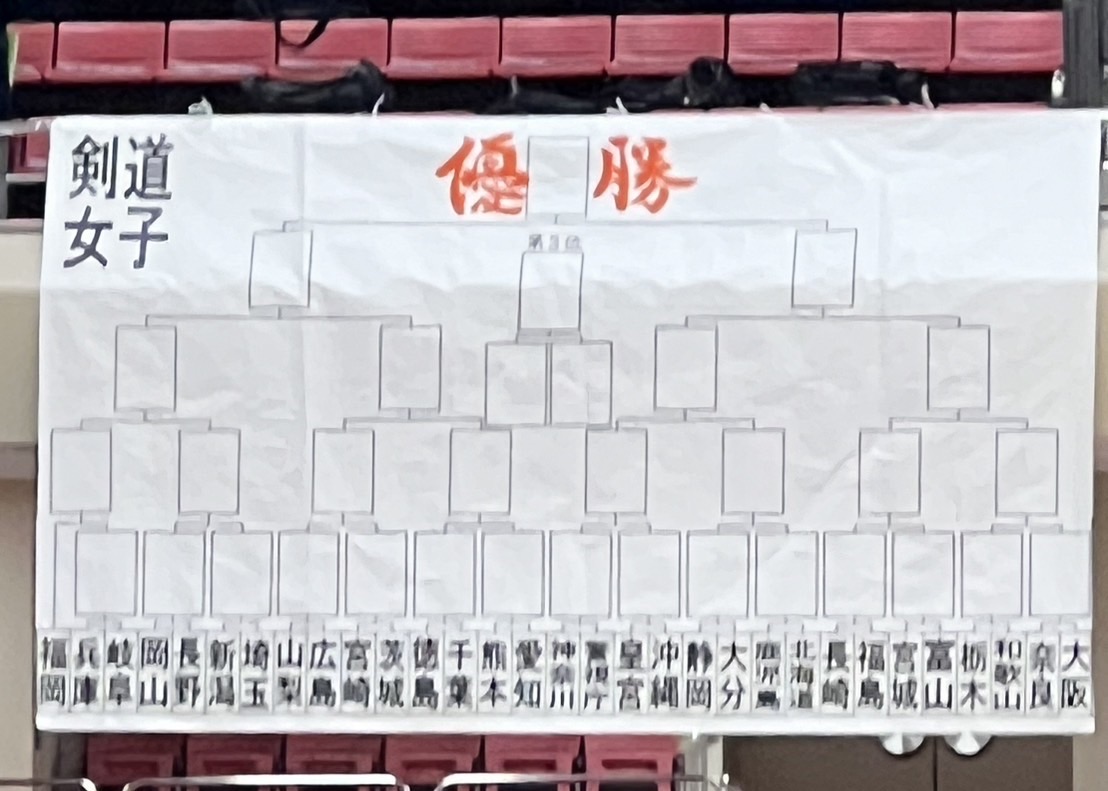 剣道
女子
優勝
第3位
福岡
兵庫
岐阜
岡山
長野
新潟
埼玉
山梨
広島
宮崎
茨城
徳島
千葉
熊本
愛知
神奈川
警視庁
皇宮
沖縄
静岡
大分
鹿児島
北海道
長崎
福島
宮城
富山
栃木
和歌山
奈良
大阪